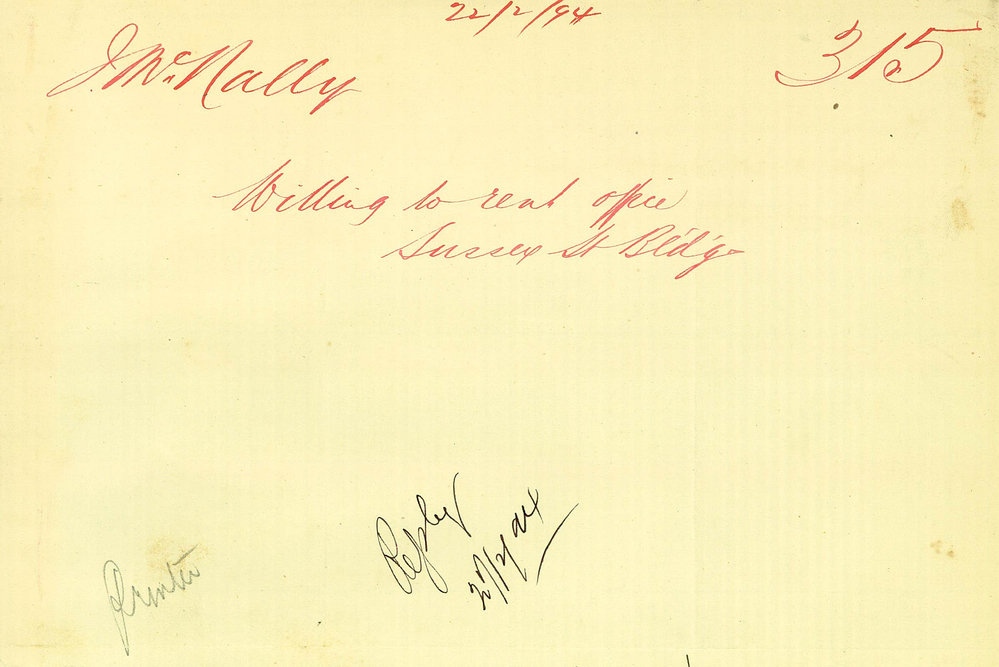 22/2/94
J. McNally
315
Willing to rent office
Sussex St Bldgs
Reply
27/2/94
Printer